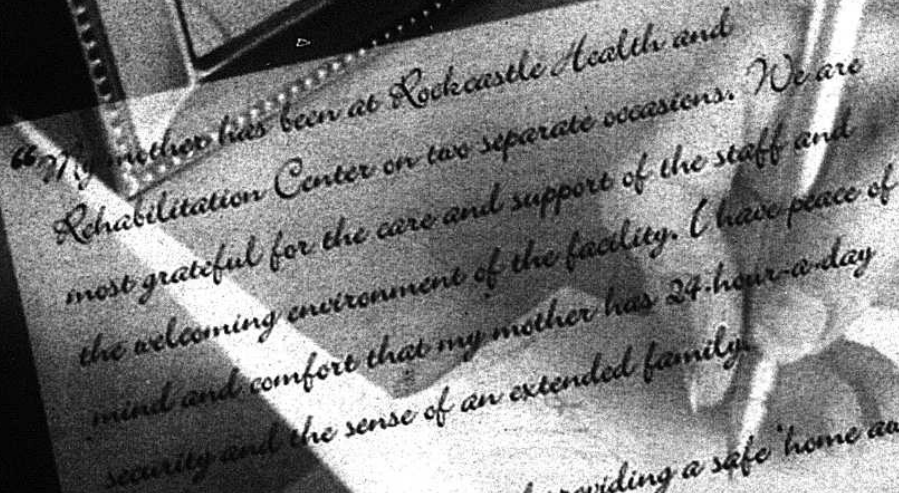 “My mother has been at Rockcastle Health and
Rehabilitation Center on two separate occasions. We are
most grateful for the care and support of the staff and
the welcoming environment of the facility. I have peace of
mind and comfort that my mother has 24-hour-a-day
security and the sense of an extended family.
providing a safe 'home